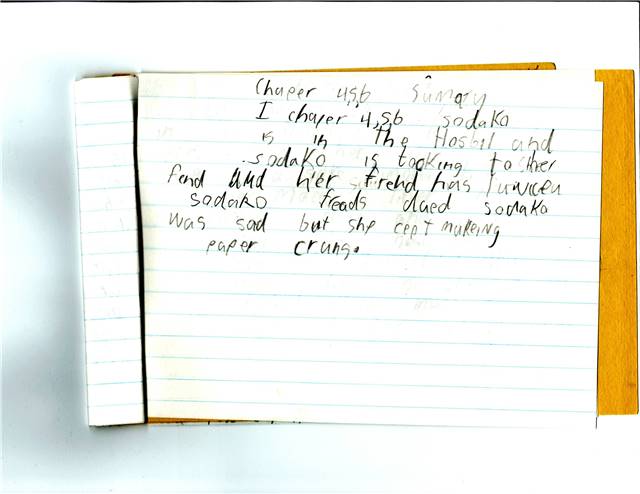 Chaper 4,5,6 Sumary
I chaper 4,5,6 sodako
is in the Hosbil and
sodako is tooking to ther
fend and h'er frend has luwiceu
sodako freads daed sodako
was sad but she cept makeing
paper crans.